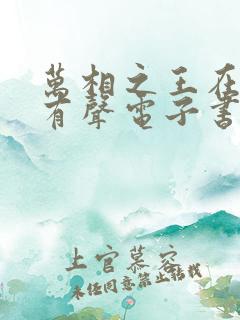 萬相之王在
有聲電子書
上官慕容
未經同意禁止轉載